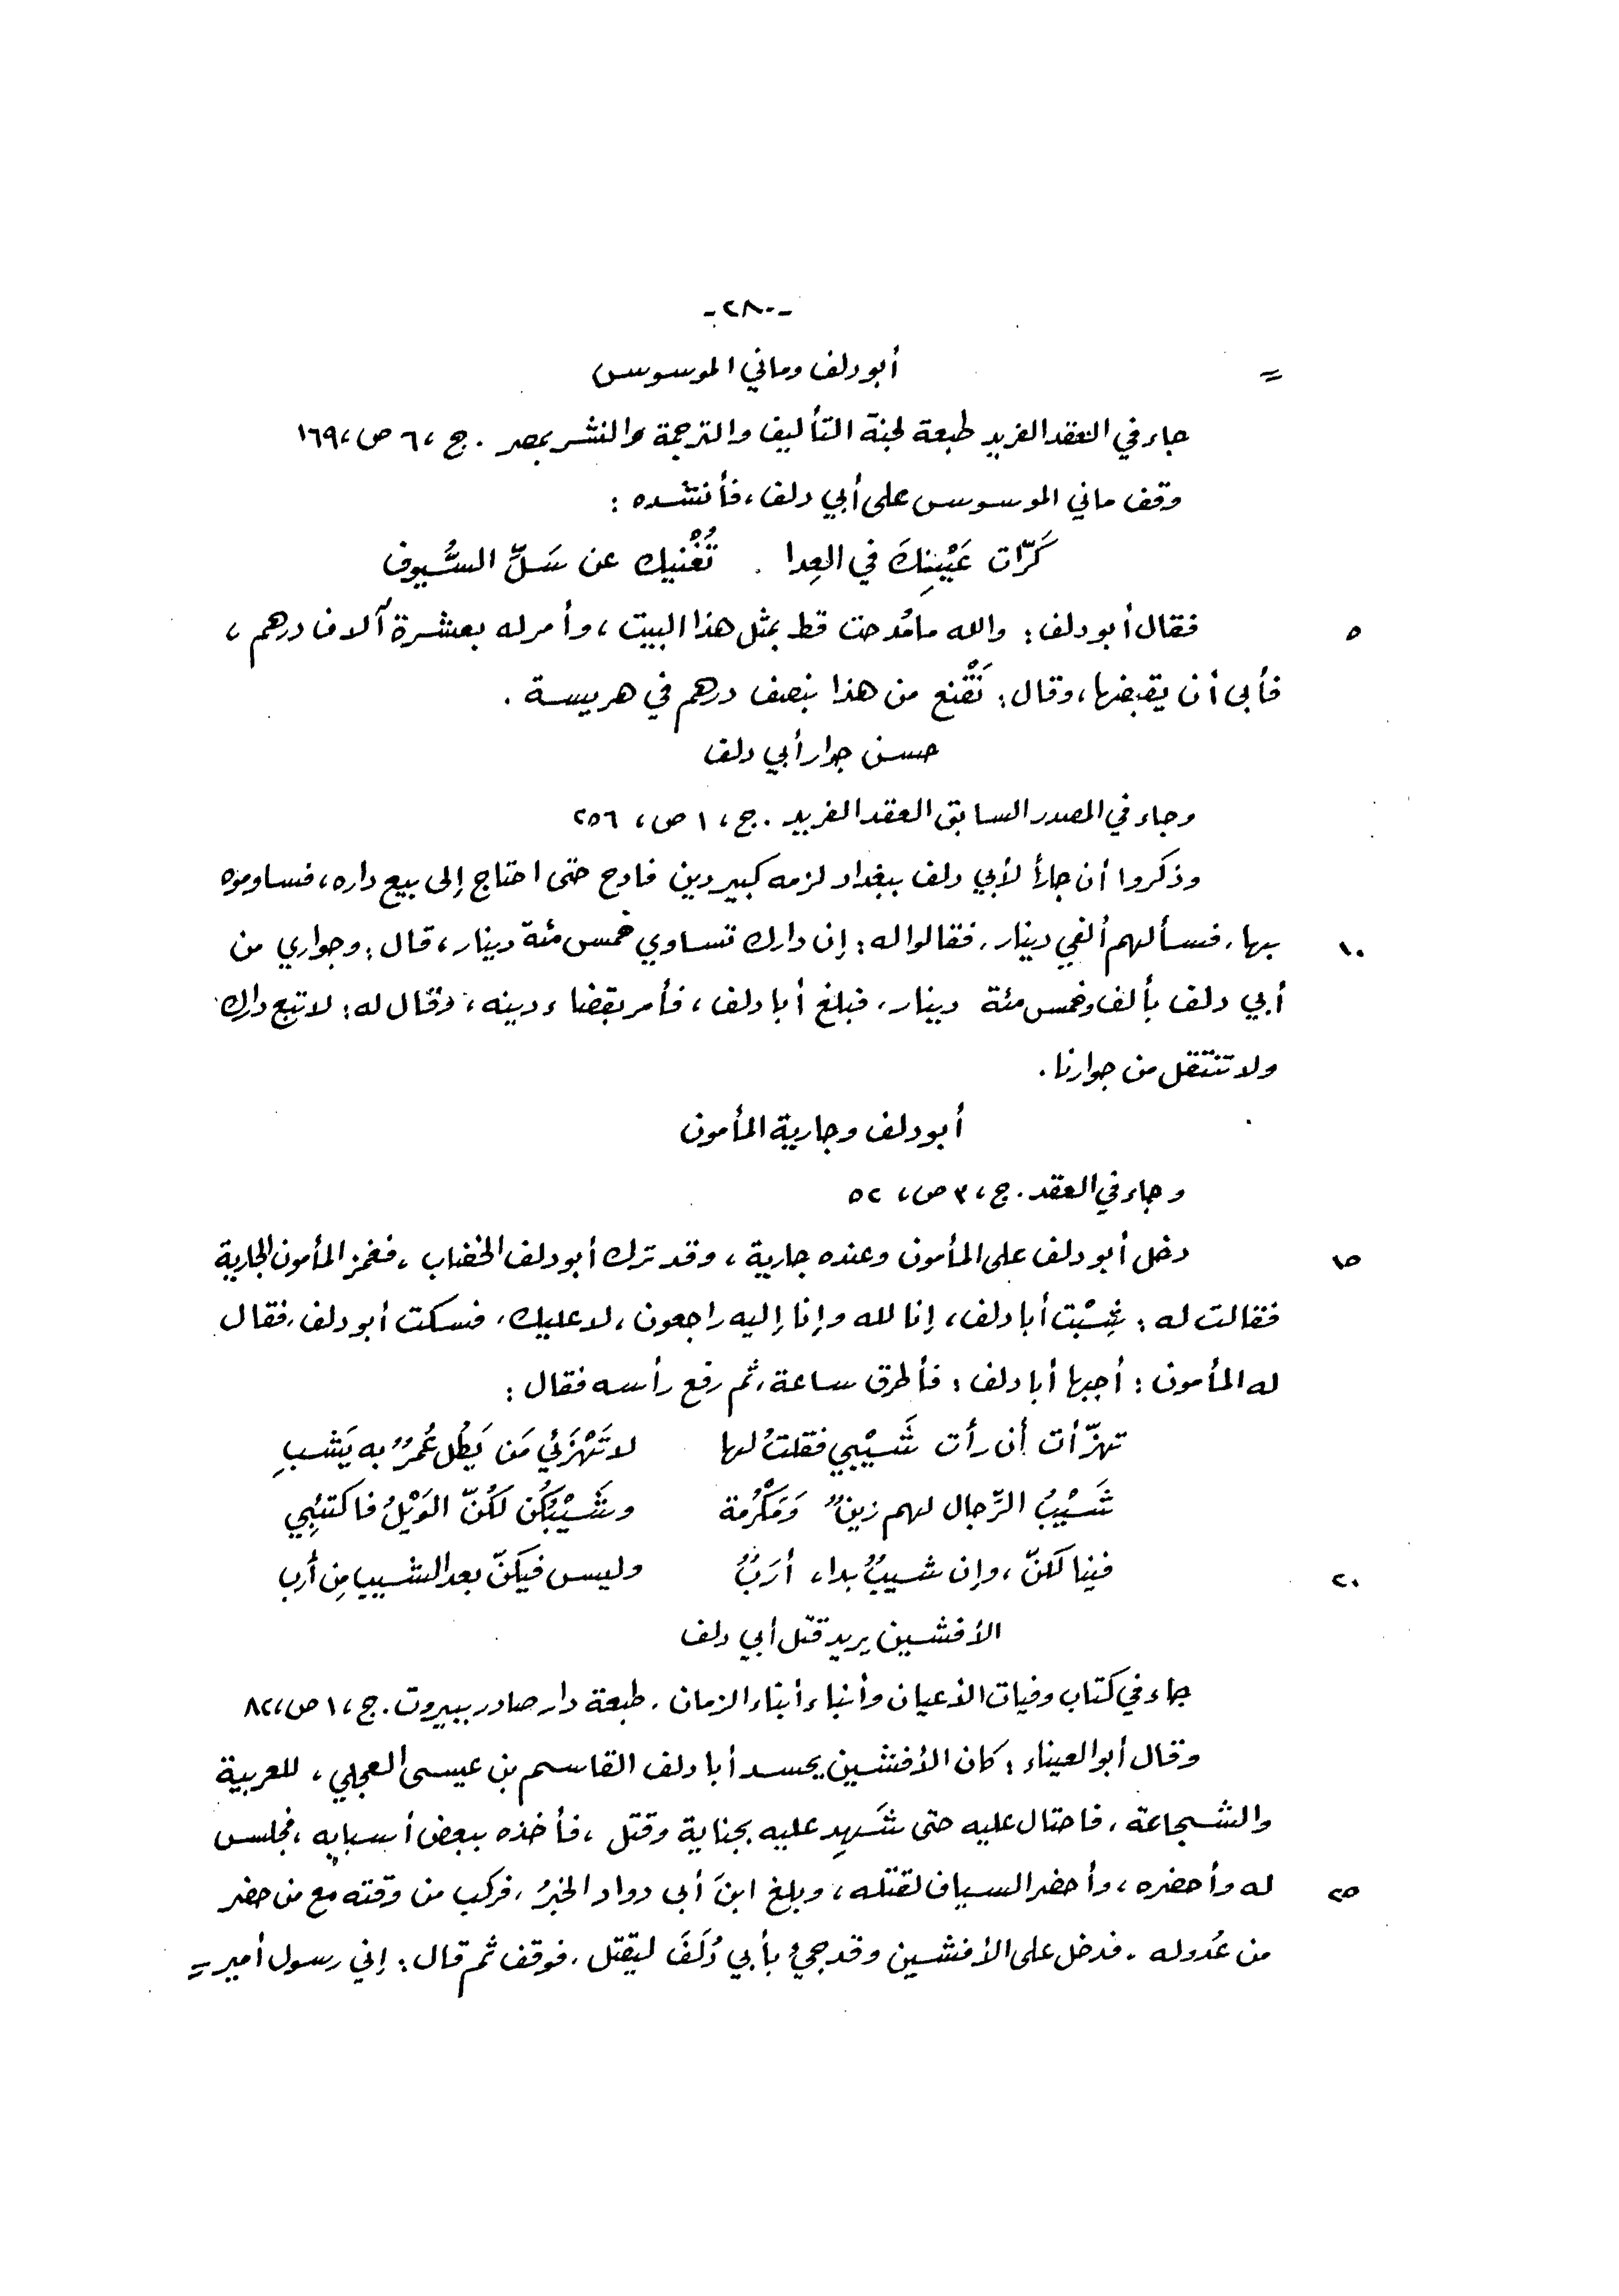 -٢٨٠-
= أبو دلف وماني الموسوس
جاء في العقد الفريد طبعة لجنة التأليف والترجمة والنشر بمصر . ج ، ٦ ص ، ١٦٩
وقف ماني الموسوس على أبي دلف ، فأنشده :
كَرّات عَيْنِكَ في العِدا . تُغْنيك عن سَلِّ السُّيوف
٥ فقال أبو دلف : والله ما مُدحت قط بمثل هذا البيت ، وأمر له بعشرة آلاف درهم ،
فأبى أن يقبضها ، وقال : نَقْنع من هذا بنصف درهم في هريسة .
حسن جوار أبي دلف
وجاء في المصدر السابق العقد الفريد . ج ، ١ ص ، ٢٥٦
وذكروا أن جاراً لأبي دلف ببغداد لزمه كبير دين فادح حتى احتاج إلى بيع داره ، فساوموه
١٠ بها ، فسألهم ألفي دينار ، فقالوا له : إن دارك تساوي خمس مئة دينار ، قال : وجواري من
أبي دلف بألف وخمس مئة دينار ، فبلغ أبا دلف ، فأمر بقضاء دينه ، وقال له : لا تبع دارك
ولا تنتقل من جوارنا .
أبو دلف وجارية المأمون
وجاء في العقد . ج ، ٣ ص ، ٥٢
١٥ دخل أبو دلف على المأمون وعنده جارية ، وقد ترك أبو دلف الخضاب ، فغمز المأمون الجارية
فقالت له : شِبْت أبا دلف ، إنا لله وإنا إليه راجعون ، لا عليك ، فسكت أبو دلف ، فقال
له المأمون : أجبها أبا دلف : فأطرق ساعة ، ثم رفع رأسه فقال :
تهزّأت أن رأت شَيْبي فقلتُ لها لا تَهْزَئي مَن يَطُل عُمرٌ به يَشبِ
شَيْبُ الرِّجال لهم زينٌ وَمَكْرُمة وشَيْبُكُن لَكُنّ الوَيْلُ فاكتئِبي
٢٠ فينا لكنّ ، وإن شيبٌ بدا ، أرَبٌ وليس فيكنّ بعد الشيب مِن أرب
الأفشين يريد قتل أبي دلف
جاء في كتاب وفيات الأعيان وأنباء أبناء الزمان . طبعة دار صادر ببيروت . ج ، ١ ص ، ٨٢
وقال أبو العيناء : كان الأفشين يحسد أبا دلف القاسم بن عيسى العجلي ، للعربية
والشجاعة ، فاحتال عليه حتى شَهِد عليه بجناية وقتل ، فأخذه ببعض أسبابه ، فجلس
٢٥ له وأحضره ، وأحضر السياف لقتله ، وبلغ ابنَ أبى دواد الخبرُ ، فركب من وقته مع من حضر
من عُدوله . فدخل على الأفشين وقد جيءُ بأبي دُلَفَ ليقتل ، فوقف ثم قال : إني رسول أمير =